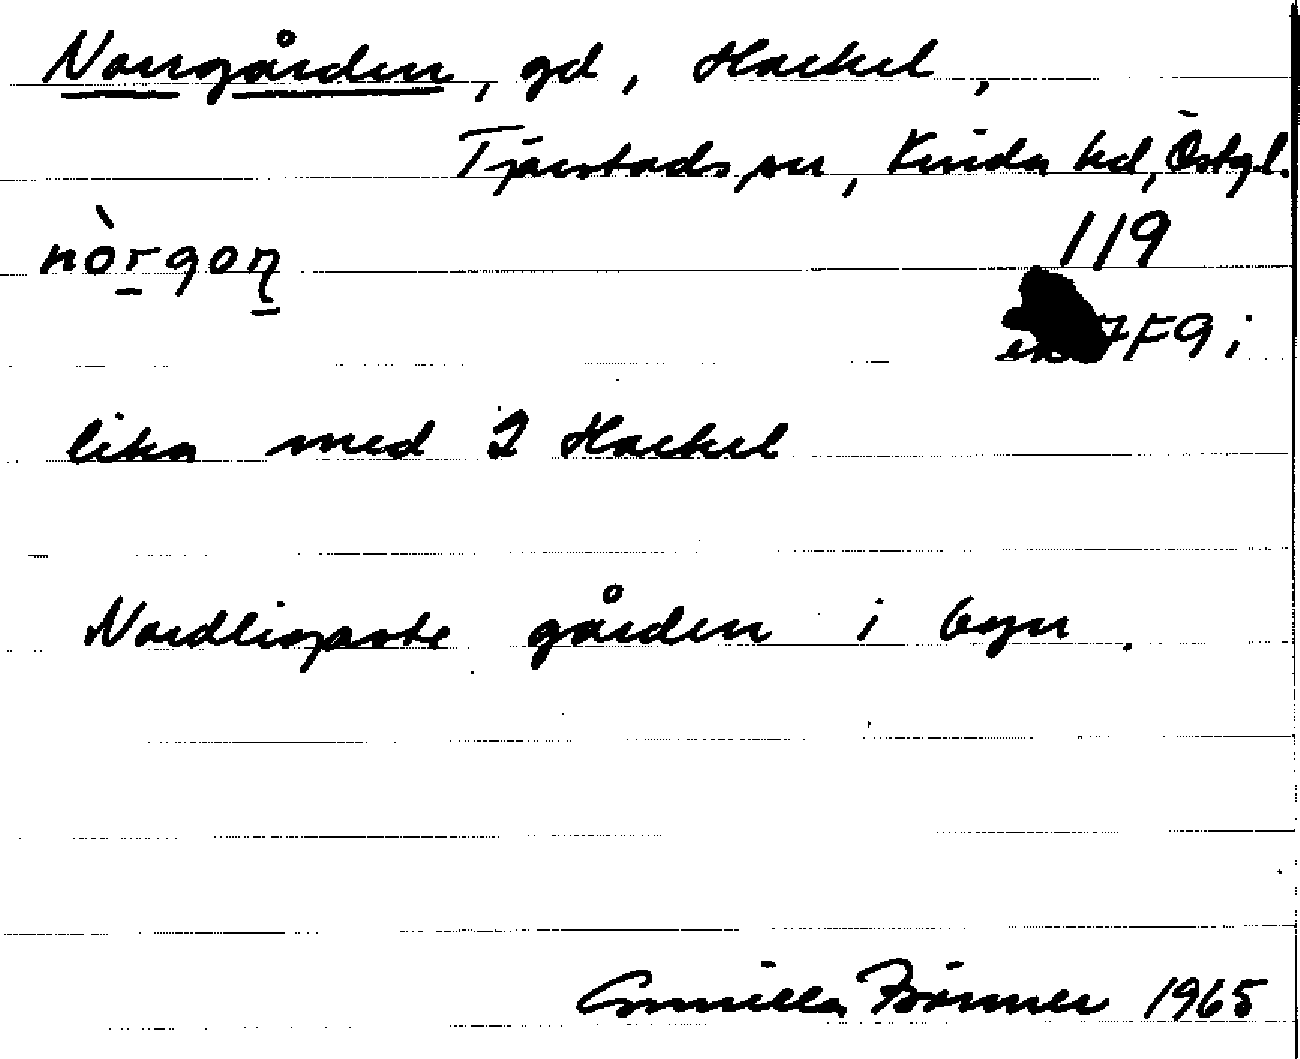 Norrgården, gd, Hackel,
Tjärstads sn, Kinda hd, Östgl.
nòrgon̥
119
7F9i
lika med 2 Hackel
Nordligaste gården i byn.
Gunilla 1965